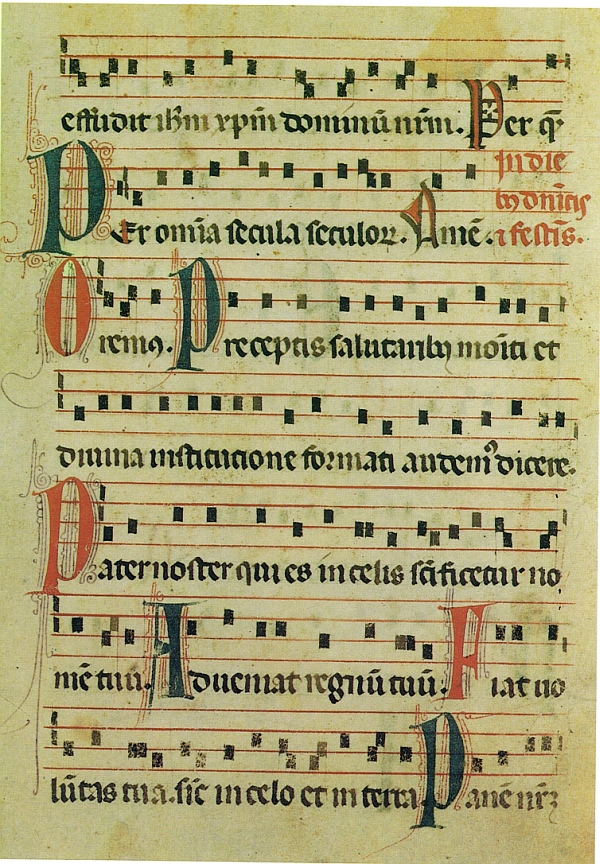 effudit ihm xpm dominū nrm. Per q̄
in die
Per omīa secula seculoꝝ. Amē. bꝫ dnīcis
⁊ festis.
Oremꝰ. Preceptis salutaribꝫ moīti et
diuina institutione formati audemꝰ dicere.
Pater noster qui es in celis scīficetur no
mē tuū. Adueniat regnū tuū. Fiat uo
lūtas tua. sic̄ in celo et in terra Panē nr̄ꝫ